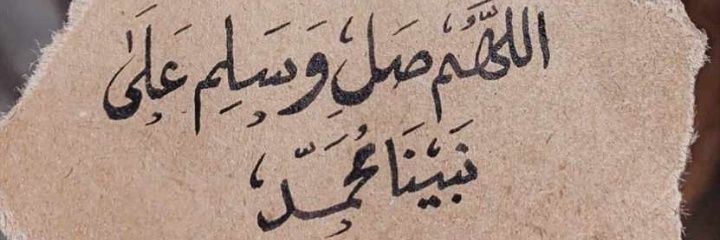 اللَّهُم صَلِ وَسَلِم عَلَىٰ
نَبَيِنَا مُحَمَدّ